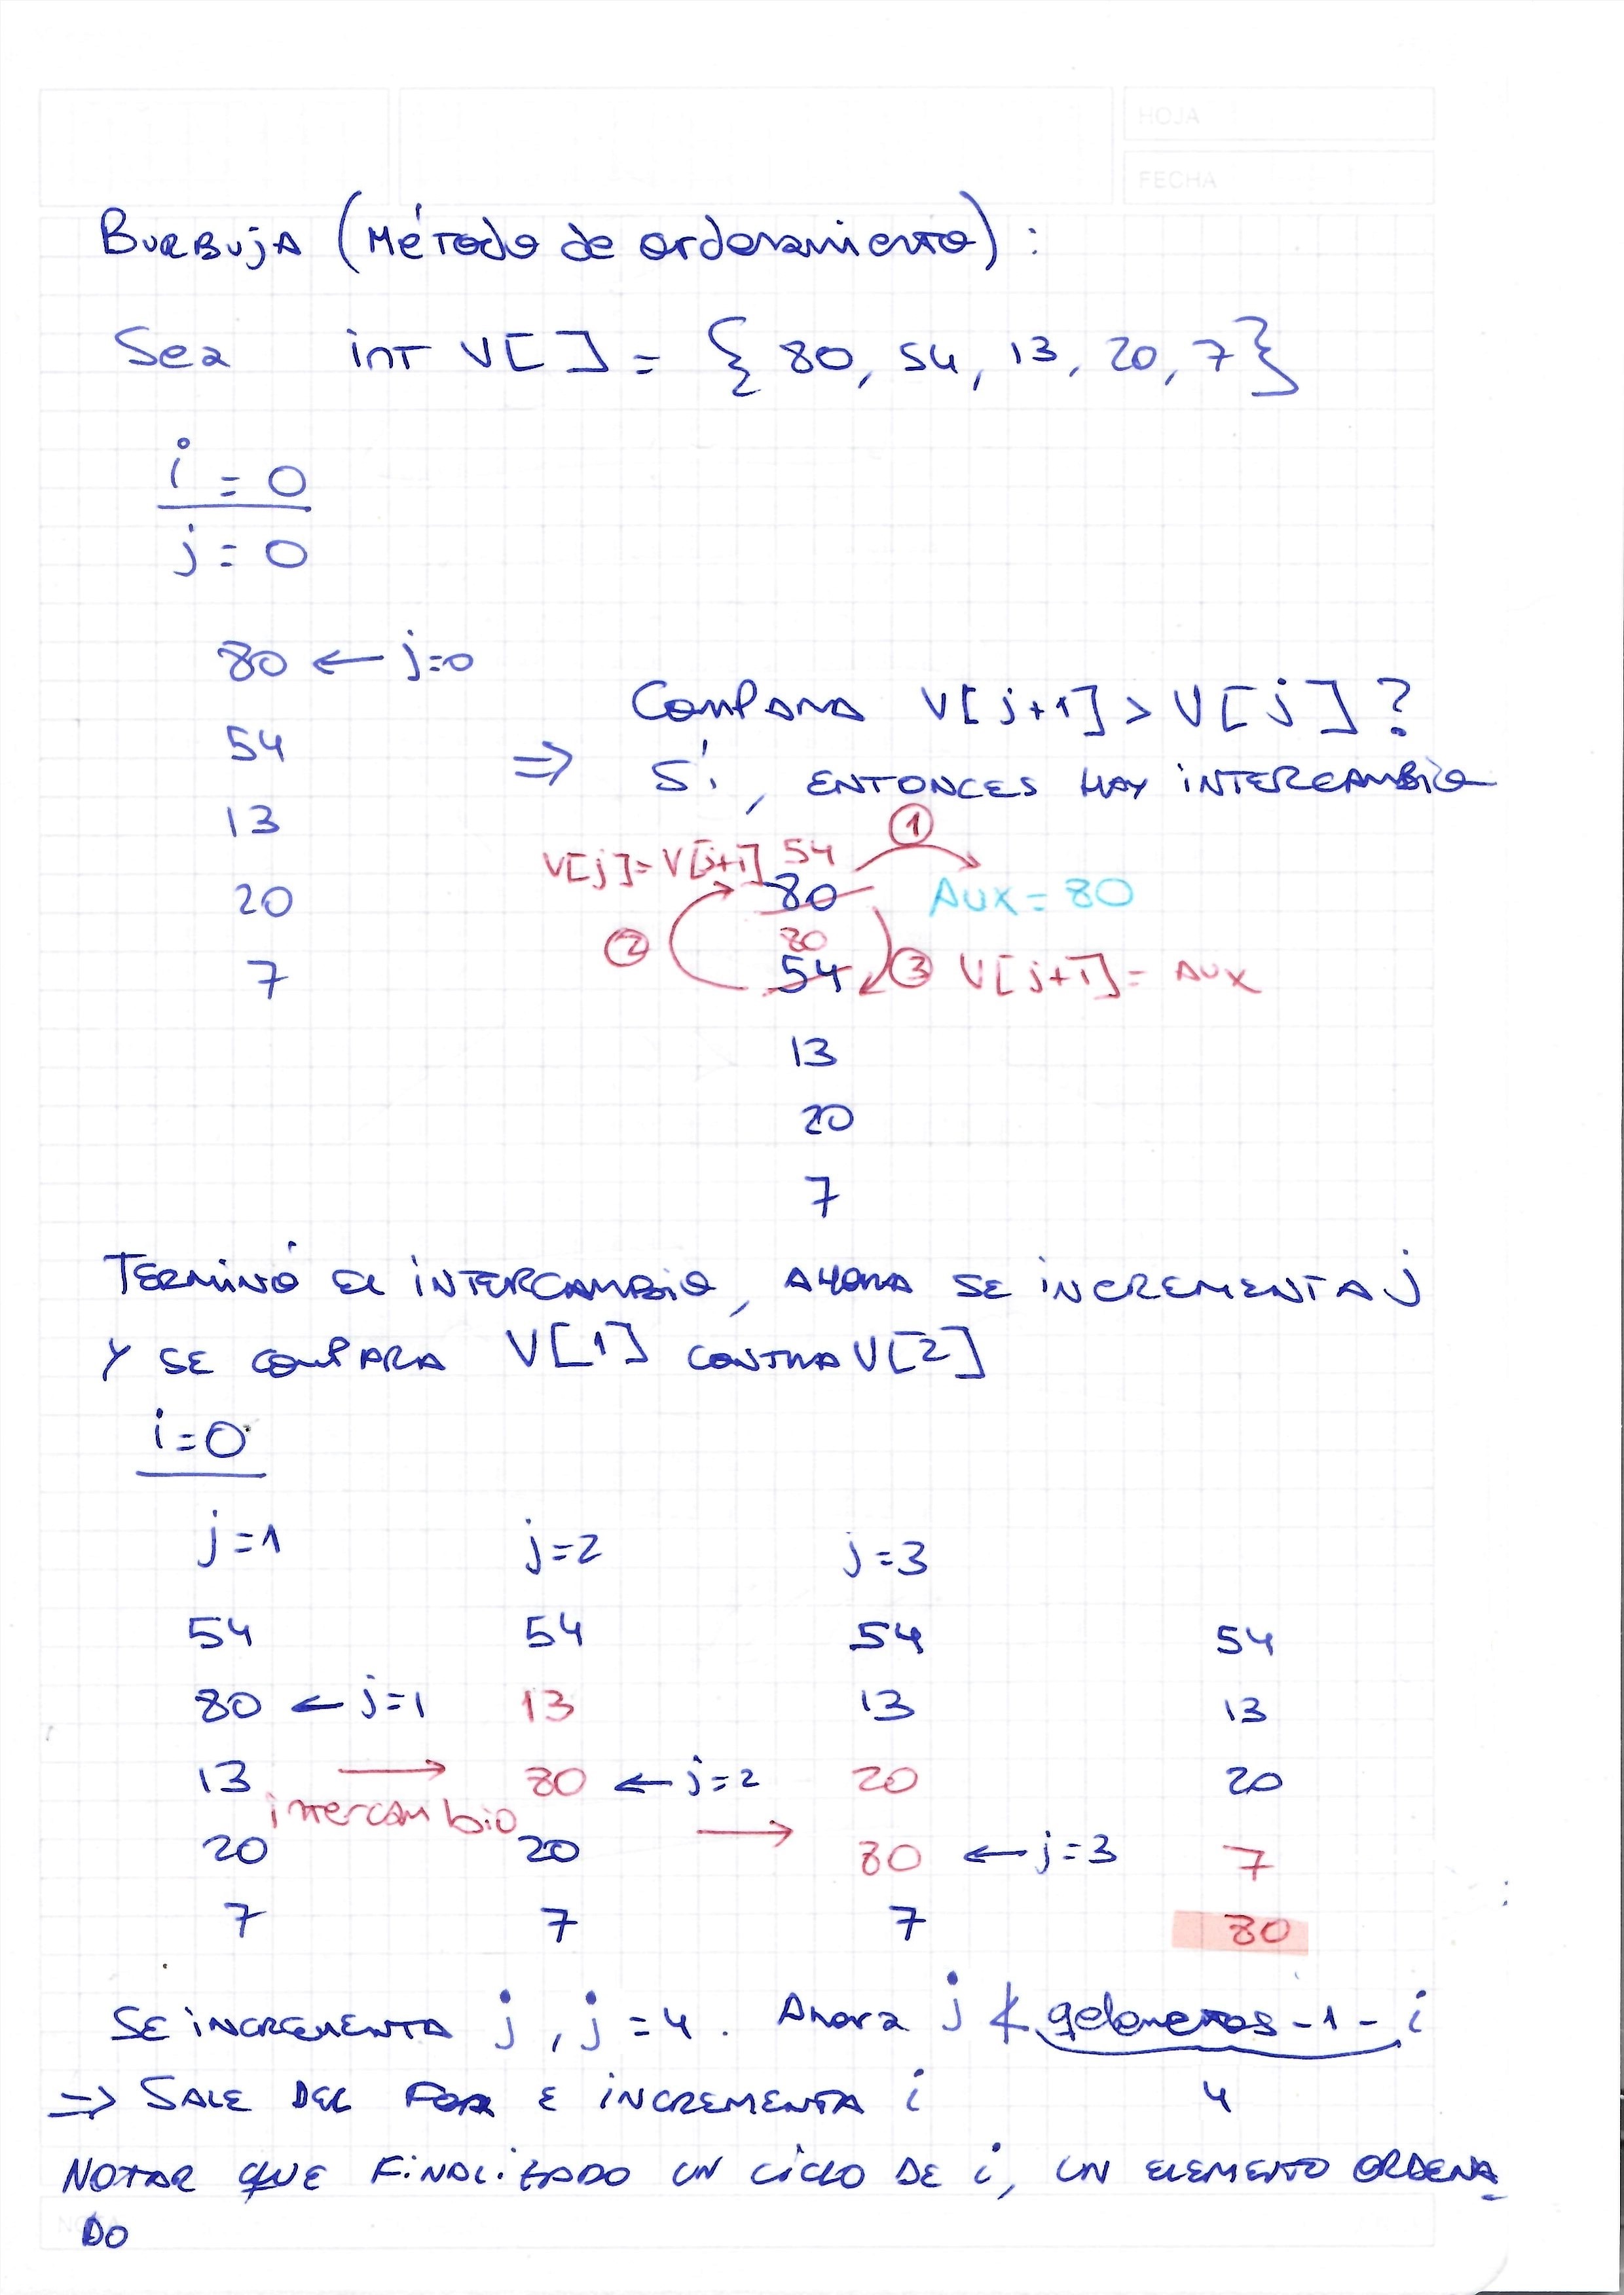 HOJA
FECHA
BURBUJA (Método de ordenamiento):
Sea int V[] = {80, 54, 13, 20, 7}
i = 0
j = 0
80 ← j=0
54
13
20
7
⇒ Compara V[j+1] > V[j] ?
Sí, ENTONCES HAY INTERCAMBIO
①
V[j]= V[j+1] 54
80 AUX = 80
② 80
54 ③ V[j+1] = AUX
13
20
7
TERMINÓ EL INTERCAMBIO, AHORA SE INCREMENTA j
Y SE COMPARA V[1] CONTRA V[2]
i=0
j=1 j=2 j=3
54 54 54 54
80 ← j=1 13 13 13
13 → 80 ← j=2 20 20
intercambio
20 20 → 80 ← j=3 7
7 7 7 80
SE INCREMENTA j, j=4. Ahora j ≮ -1-i
⇒ SALE DEL FOR E INCREMENTA i 4
NOTAR QUE FINALIZADO UN CICLO DE i, UN ELEMENTO ORDENA
DO